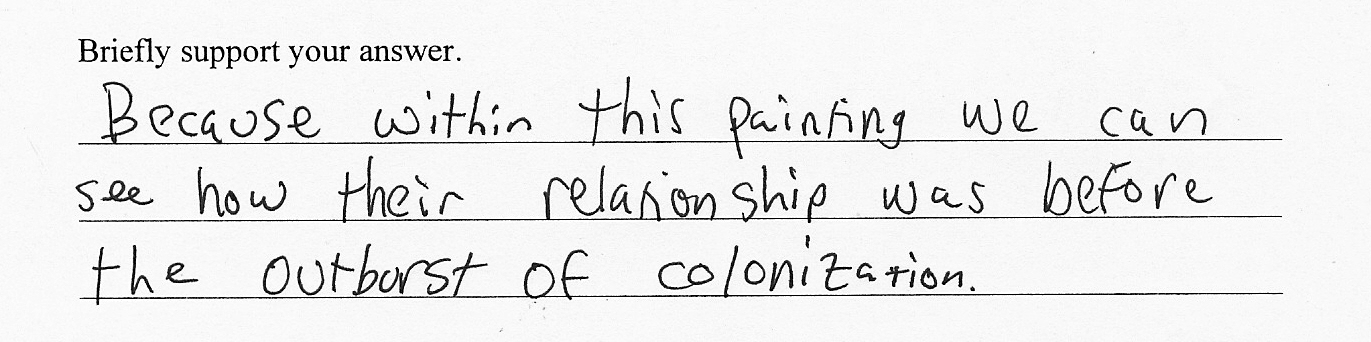 Briefly support your answer.
Because within this painting we can
see how their relationship was before
the outburst of colonization.